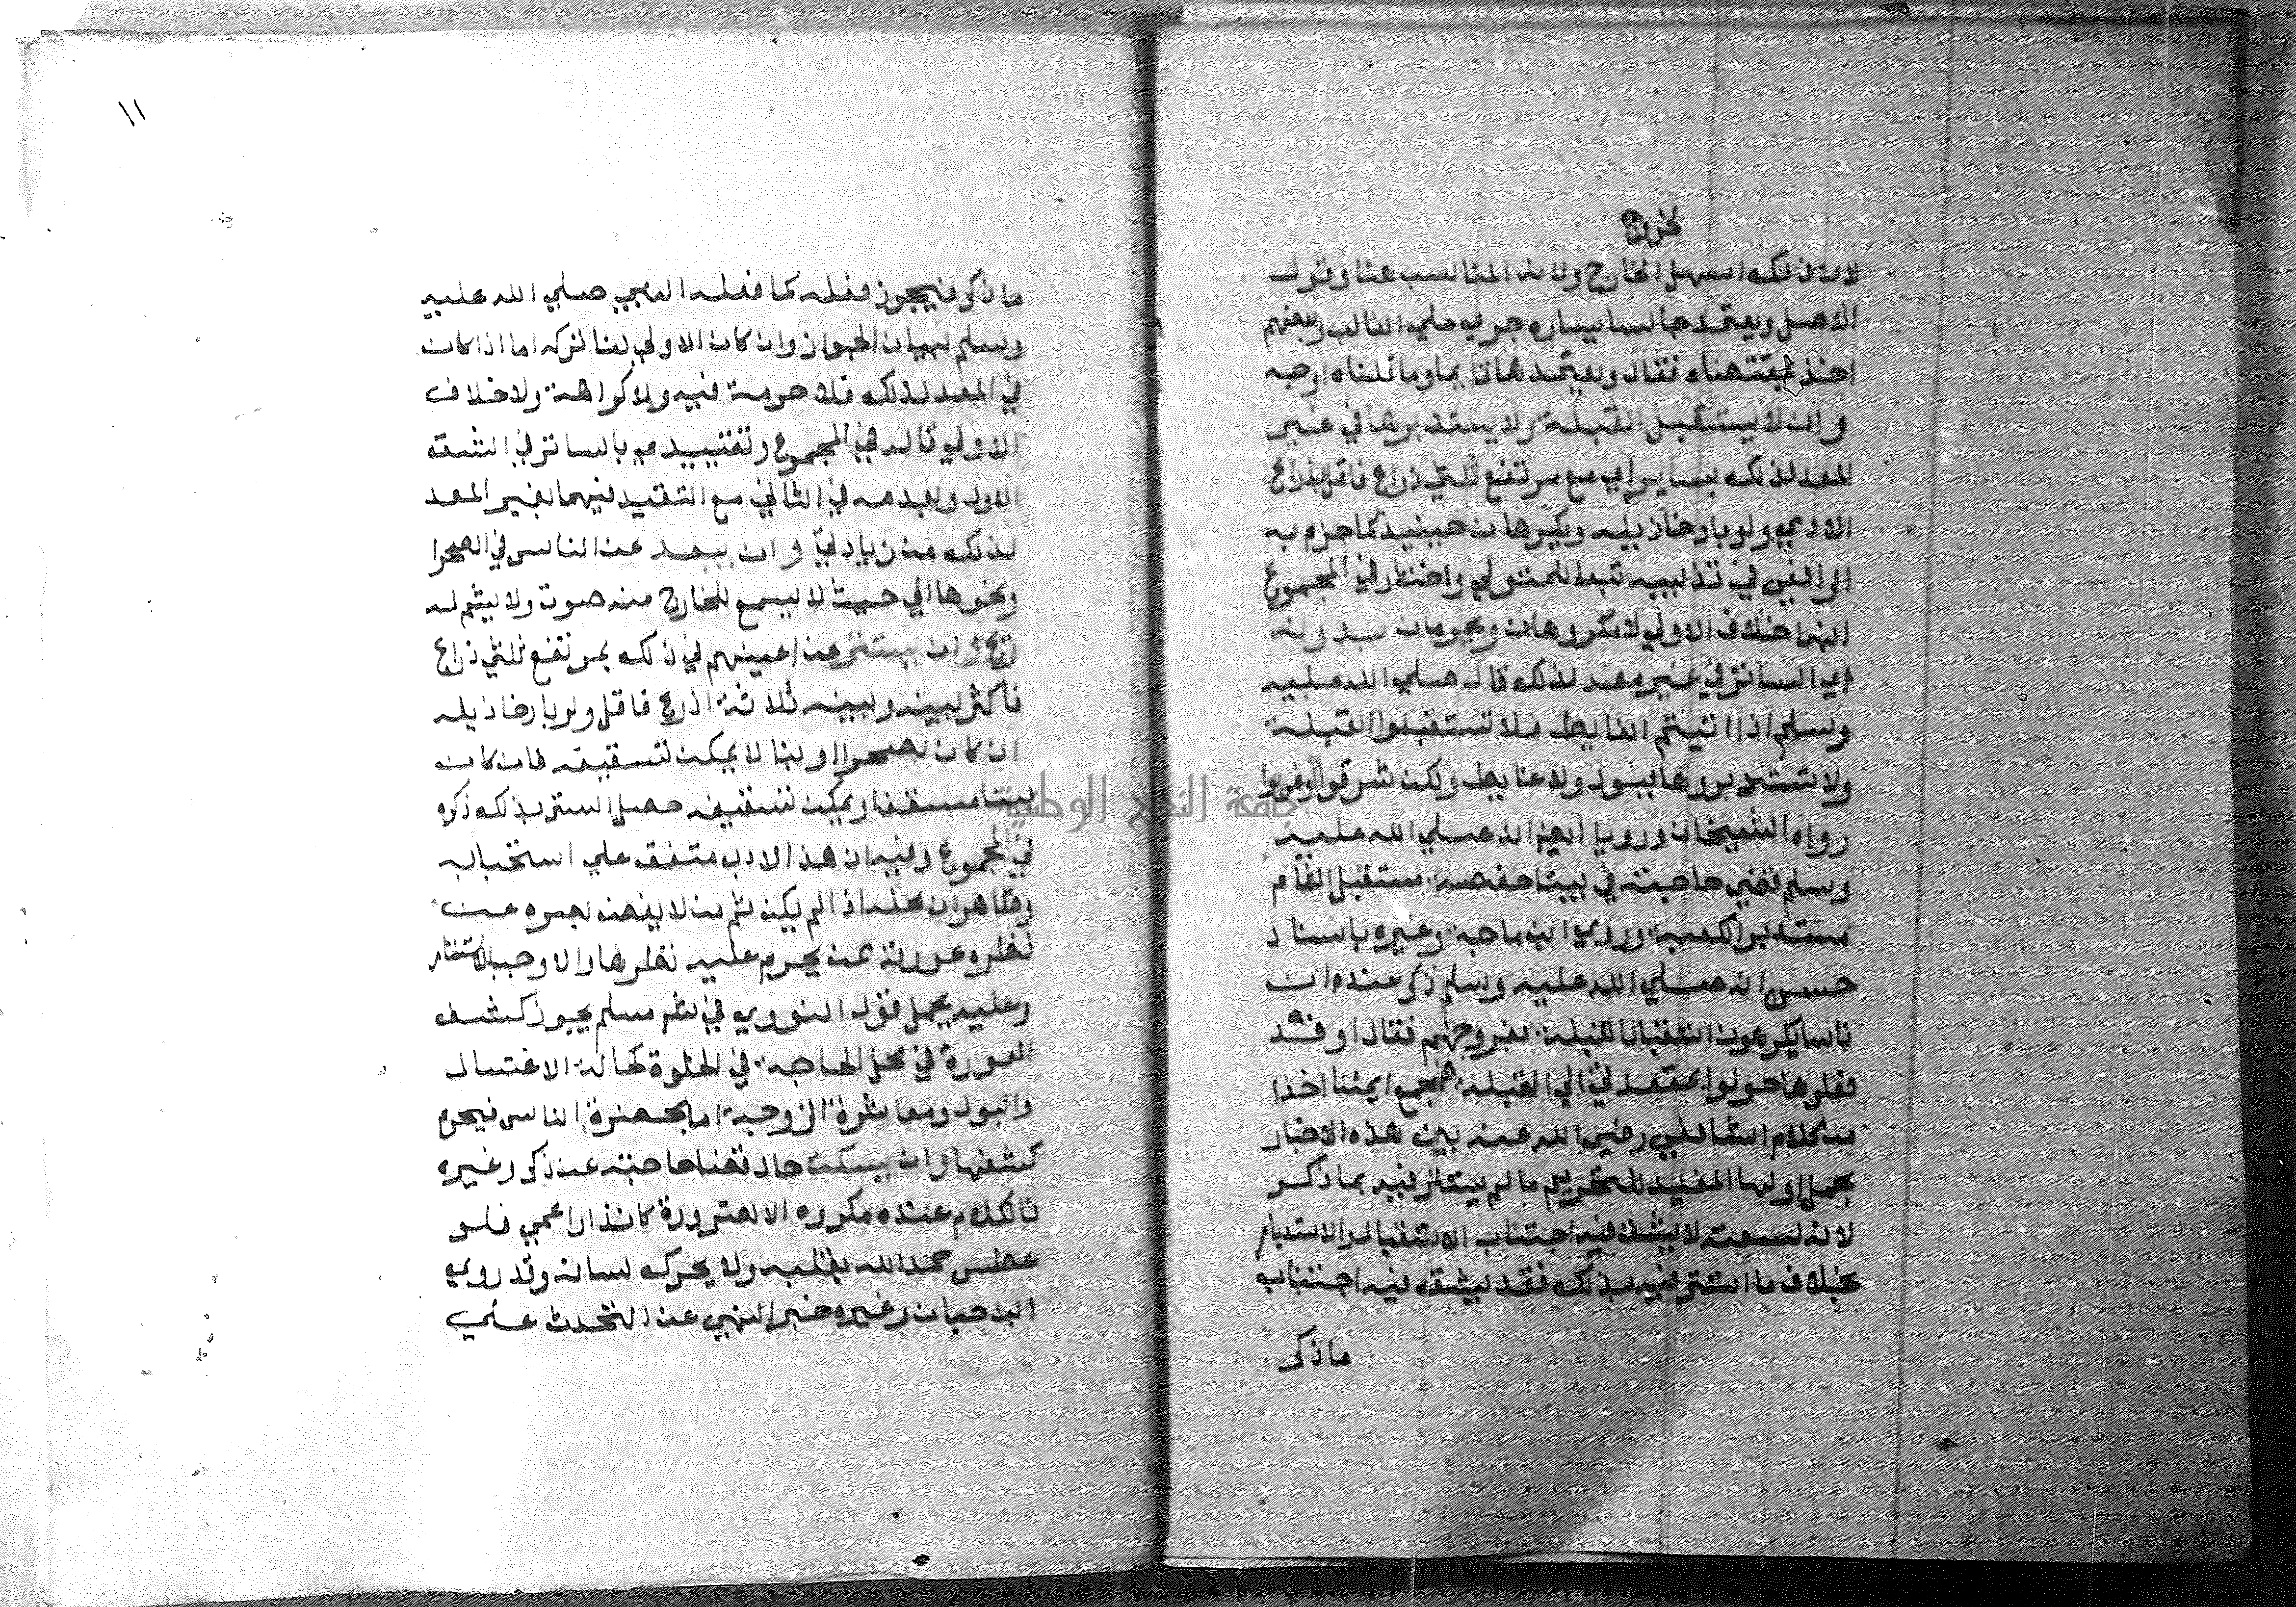 لخروج
لان ذلك اسهل الخارج ولانه المناسب هنا وقول
الاصل ويعتمد جالسا يساره جري علي الغالب وبعضهم
اخذ بمقتضاه فقال ويعتمدهما قايما وما قلناه اوجه
وان لا يستقبل القبلة ولا يستدبرها في غير
المعد لذلك بساتر اي مع مرتفع ثلثي ذراع فاقل بذراع
الادمي ولو بارخا ذيله ويكرهان حينيذ كما جزم به
الرافعي في تذنيبه تبعا للمتولي واختار في المجموع
انهما خلاف الاولي لا مكروهان ويحرمان بدونه
اي الساتر في غير معد لذلك قال صلي الله عليه
وسلم اذا اتيتم الغايط فلا تستقبلوا القبلة
ولا تستدبروها ببول ولا غايط ولكن شرقوا او غربوا
رواه الشيخان ورويا ايضا انه صلي الله عليه
وسلم قضي حاجته في بيت حفصة مستقبل الشام
مستدبر الكعبة وروي ابن ماجة وغيره باسناد
حسن انه صلي الله عليه وسلم ذكر عنده ان
ناسا يكرهون استقبال القبلة بفروجهم فقال او قد
فعلوها حولوا بمقعدتي الي القبلة فجمع ايمتنا اخذا
من كلام الشافعي رضي الله عنه بين هذه الاخبار
بحمل اولها المفيد للتحريم ما لم يستتر فيه بما ذكر
لانه لسعته لا يشق فيه اجتناب الاستقبال والاستدبار
بخلاف ما استتر فيه بذلك فقد يشق فيه اجتناب
ما ذكر
١١
ما ذكر فيجوز فعله كما فعله النبي صلي الله عليه
وسلم لبيان الجواز وان كان الاولي لنا تركه اما اذا كان
في المعد لذلك فلا حرمة فيه ولا كراهة ولا خلاف
الاولي قاله في المجموع وتقييدي بالساتر في الشق
الاول وبعدمه في الثاني مع التقيد فيهما بغير المعد
لذلك من زيادتي وان يبعد عن الناس في الصحرا
ونحوها الي حيث لا يسمع للخارج منه صوت ولا يشم له
ريح وان يستتر عن اعينهم في ذلك بمرتفع ثلثي ذراع
فاكثر بينه وبينه ثلاثة اذرع فاقل ولو بارخا ذيله
ان كان بصحرا او بنا لا يمكن تسقيفه فان كان
ببنا مسقف او يمكن تسقيفه حصل الستر بذلك ذكره
في المجموع وفيه ان هذا الادب متفق علي استحبابه
وظاهر ان محله اذا لم يكن ثم من لا يغض بصره عن
نظره عورته ممن يحرم عليه نظرها والا وجب الاستتار
وعليه يحمل قول النووي في شم مسلم يجوز كشف
العورة في محل الحاجة في الخلوة كحالة الاغتسال
والبول ومعاشرة الزوجة اما بحضرة الناس فيحرم
كشفها وان يسكت حال قضا حاجته عن ذكر وغيره
فالكلام عنده مكروه الا لضرورة كانذار اعمي فلو
عطس حمد الله بقلبه ولا يحرك لسانه وقد روي
ابن حبان وغيره خبر النهي عن التحدث علي
جامعة النجاح الوطنية